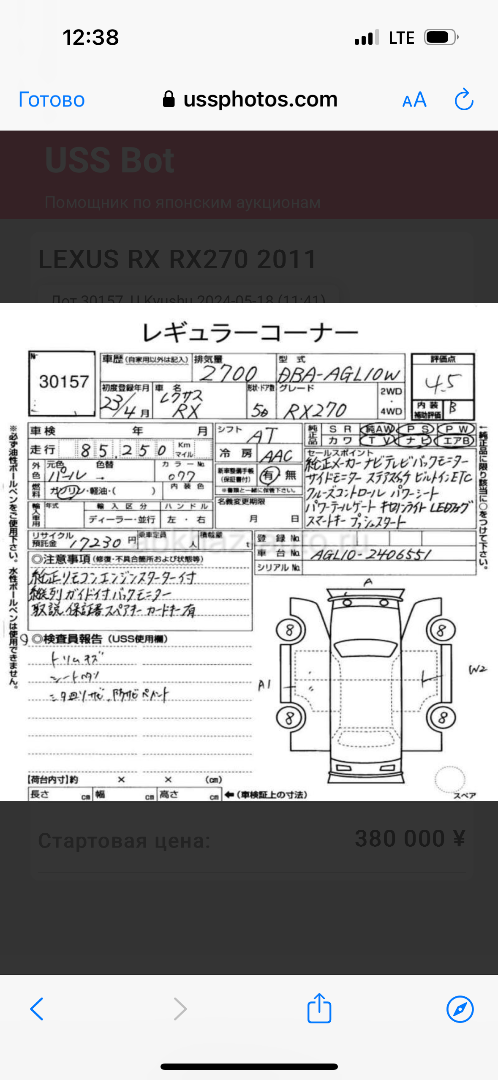 12:38
LTE
Готово
ussphotos.com
AA
USS Bot
Помощник по японским аукционам
LEXUS RX RX270 2011
Лот 30157, U Kyushu 2024-05-18 (11:41)
レギュラーコーナー
№
30157
車歴 (自家用以外は記入)
排気量
2700
型式
DBA-AGL10W
評価点
4.5
初度登録年月
23/4月
車名
レクサス
RX
形状・ドア数
5D
グレード
RX270
2WD
-
4WD
内装
補助評価
B
車検 年 月
シフト
AT
純正品
SR 純AW PS PW
カワ TV ナビ エアB
走行 85,250 Km マイル
冷房 AAC
セールスポイント
純正メーカーナビテレビバックモニター
外色
元色
パール
色替
→
カラーNo
077
新車整備手帳
(保証書付)
有 無
※書類と一緒に保管下さい。
サイドモニター ステアスイッチ ビルトインETC
燃料
ガソリン・軽油・( )
内装色
クルーズコントロール パワーシート
名義変更期限
月 日
パワーテールゲート キセノンライト LEDフォグ
スマートキー プッシュスタート
輸入車用
年式
輸入区分
ディーラー・並行
ハンドル
左・右
リサイクル
預託金
17230 円
乗車定員
人
積載量
t
登録No.
車台No. AGL10-2406551
シリアルNo.
◎注意事項 (修復・不具合箇所および状態等)
純正リモコンエンジンスターター付
縦列ガイド付バックモニター
取説 保証書 スペアキー カードキー有
◎検査員報告 (USS使用欄)
トリムキズ
A
8
8
8
8
A1
W2
スペア
【荷台内寸】約 × × (cm)
長さ cm 幅 cm 高さ cm ←(車検証上の寸法)
※必ず油性ボールペンをご使用下さい。水性ボールペンは使用できません。
純正品に限り該当に○をつけて下さい。
Стартовая цена:
380 000 ¥